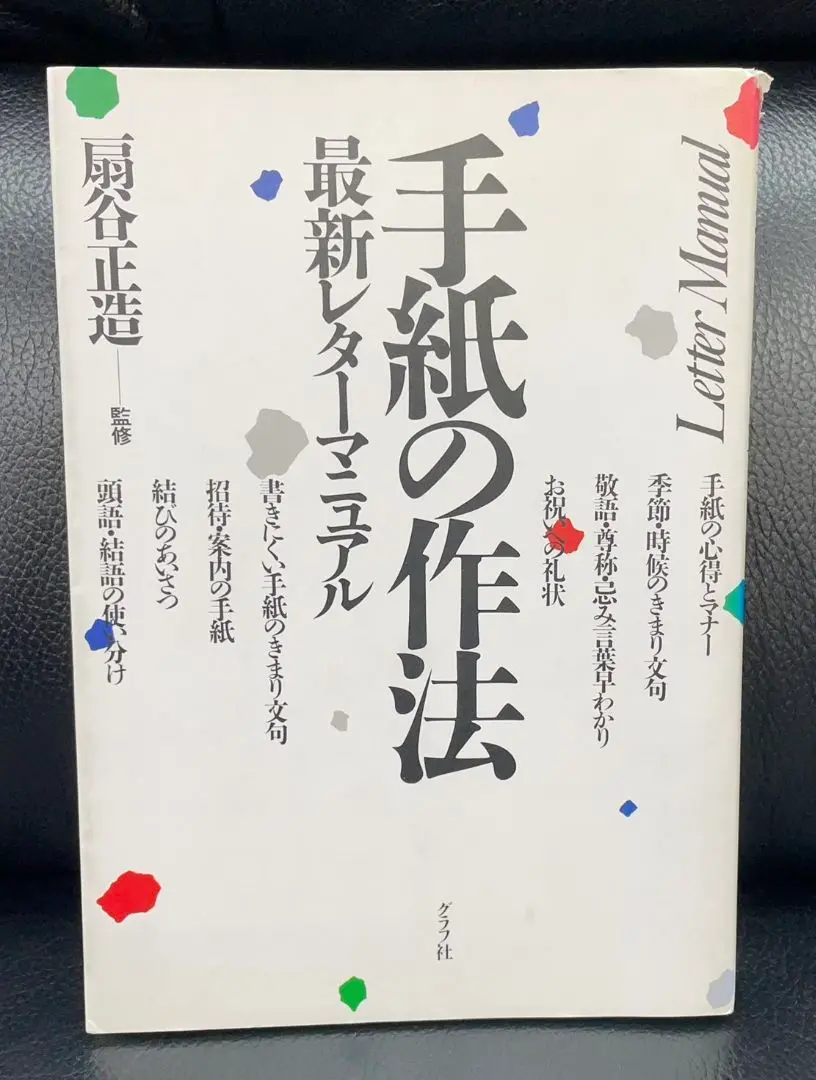 Letter Manual
手紙の心得とマナー
季節・時候のきまり文句
敬語・尊称・忌み言葉早わかり
お祝いへの礼状
手紙の作法
最新レターマニュアル
書きにくい手紙のきまり文句
招待・案内の手紙
結びのあいさつ
頭語・結語の使い分け
扇谷正造——監修
グラフ社